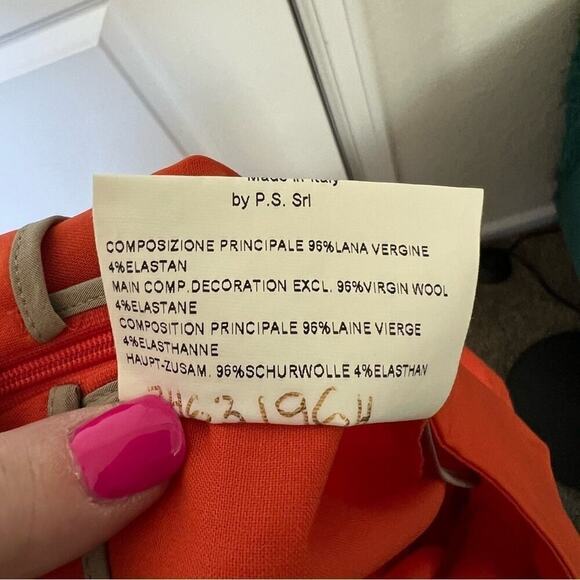 Made in Italy
by P.S. Srl
COMPOSIZIONE PRINCIPALE 96%LANA VERGINE
4%ELASTAN
MAIN COMP.DECORATION EXCL. 96%VIRGIN WOOL
4%ELASTANE
COMPOSITION PRINCIPALE 96%LAINE VIERGE
4%ELASTHANNE
HAUPT-ZUSAM. 96%SCHURWOLLE 4%ELASTHAN